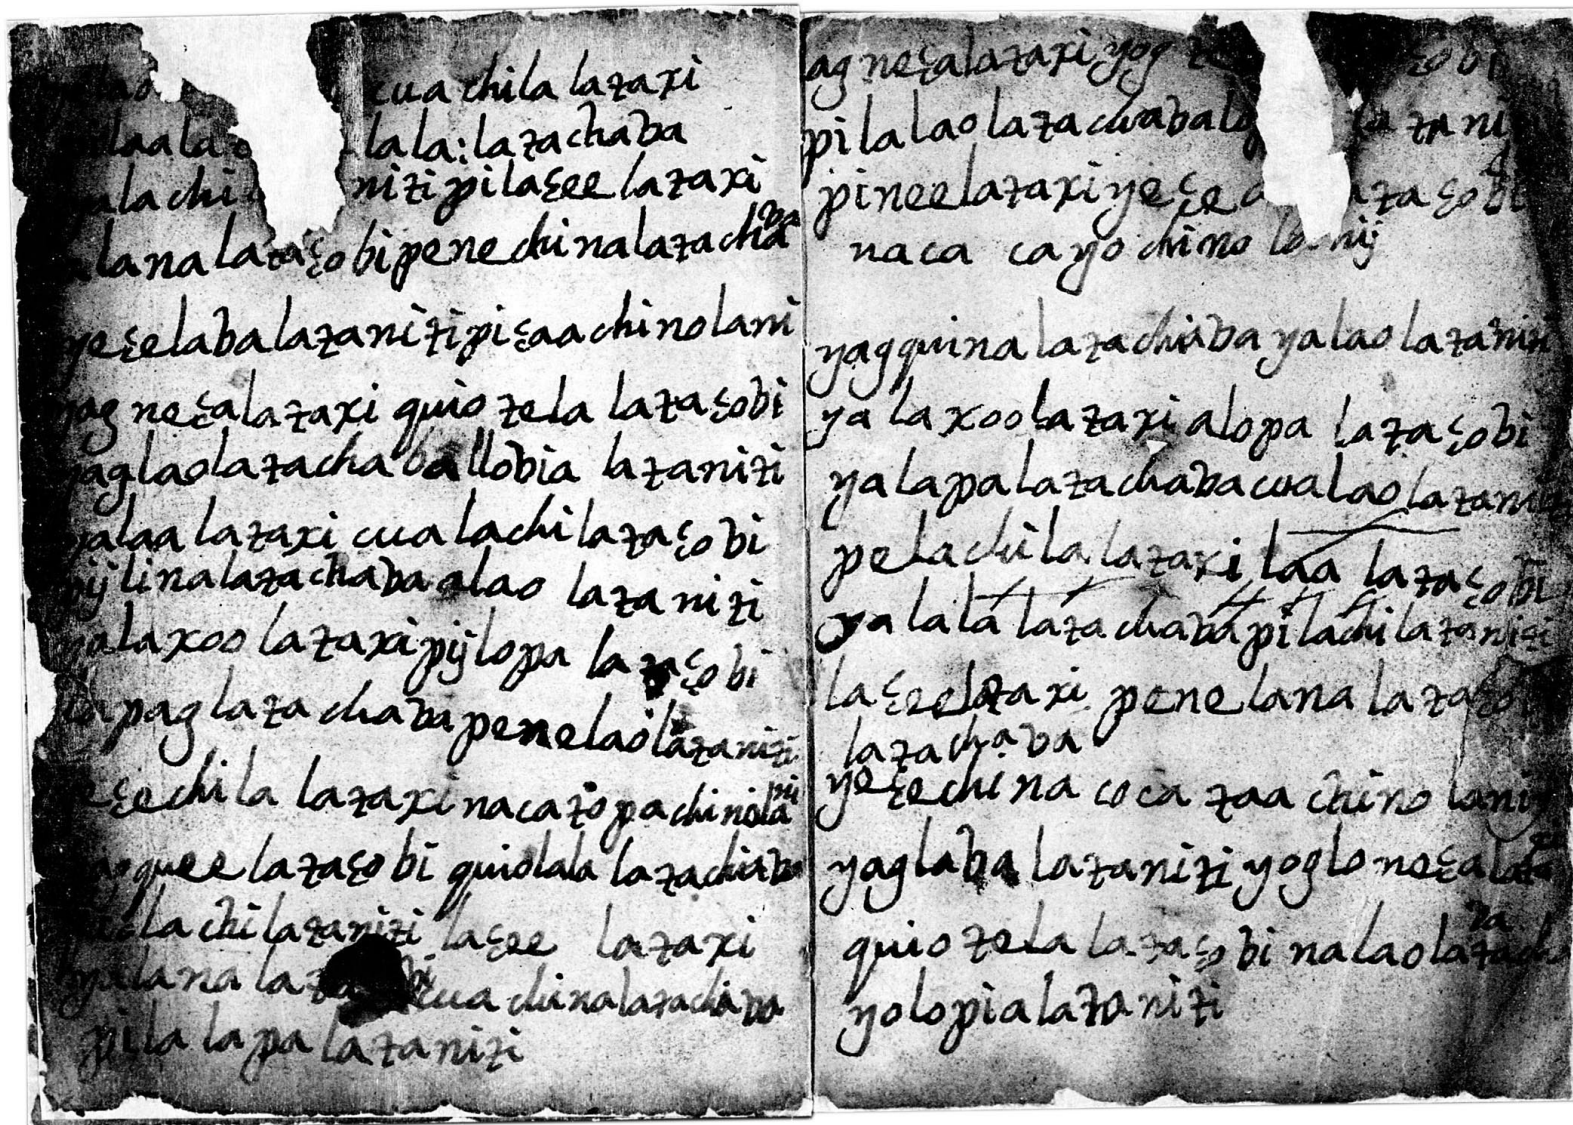 cua chila lazaxi
lala: lazachaba
nizi pilaçee lazaxi
lana lazaçobi penechina lazachaba
yeçelaba lazanizi piçaa chino lani
yag neça lazaxi quiozela lazaçobi
yaglao lazachaba llobia lazanizi
yalaa lazaxi cualachi lazaçobi
pijlina lazachaba alao lazanizi
yalaxoo lazaxi pijlopa lazaçobi
pag lazachaba penelao lazanizi
yeçechila lazaxi naca zopa chino lanij
quee lazaçobi quiolala lazachaba
lachi lazanizi laçee lazaxi
yalana cua china lazachaba
pilalapa lazanizi
yag neça lazaxi yog çobi
pilalao lazachabalo zani
pinee lazaxi yeçe zaçobi
naca cayo chino lanij
yagquina lazachaba yalao lazanizi
yalaxoo lazaxi alopa lazaçobi
yalapa lazachaba cualao lazanizi
pelachila lazaxi laa lazaçobi
yalala lazachaba pilachi lazanizi
laçee lazaxi penelana lazaçobi
lazachaba
yeçechina coca zaa chino lanij
yaglaba lazanizi yoglo neça lazaxi
quiozela lazaçobi nalao lazachaba
yolopia lazanizi